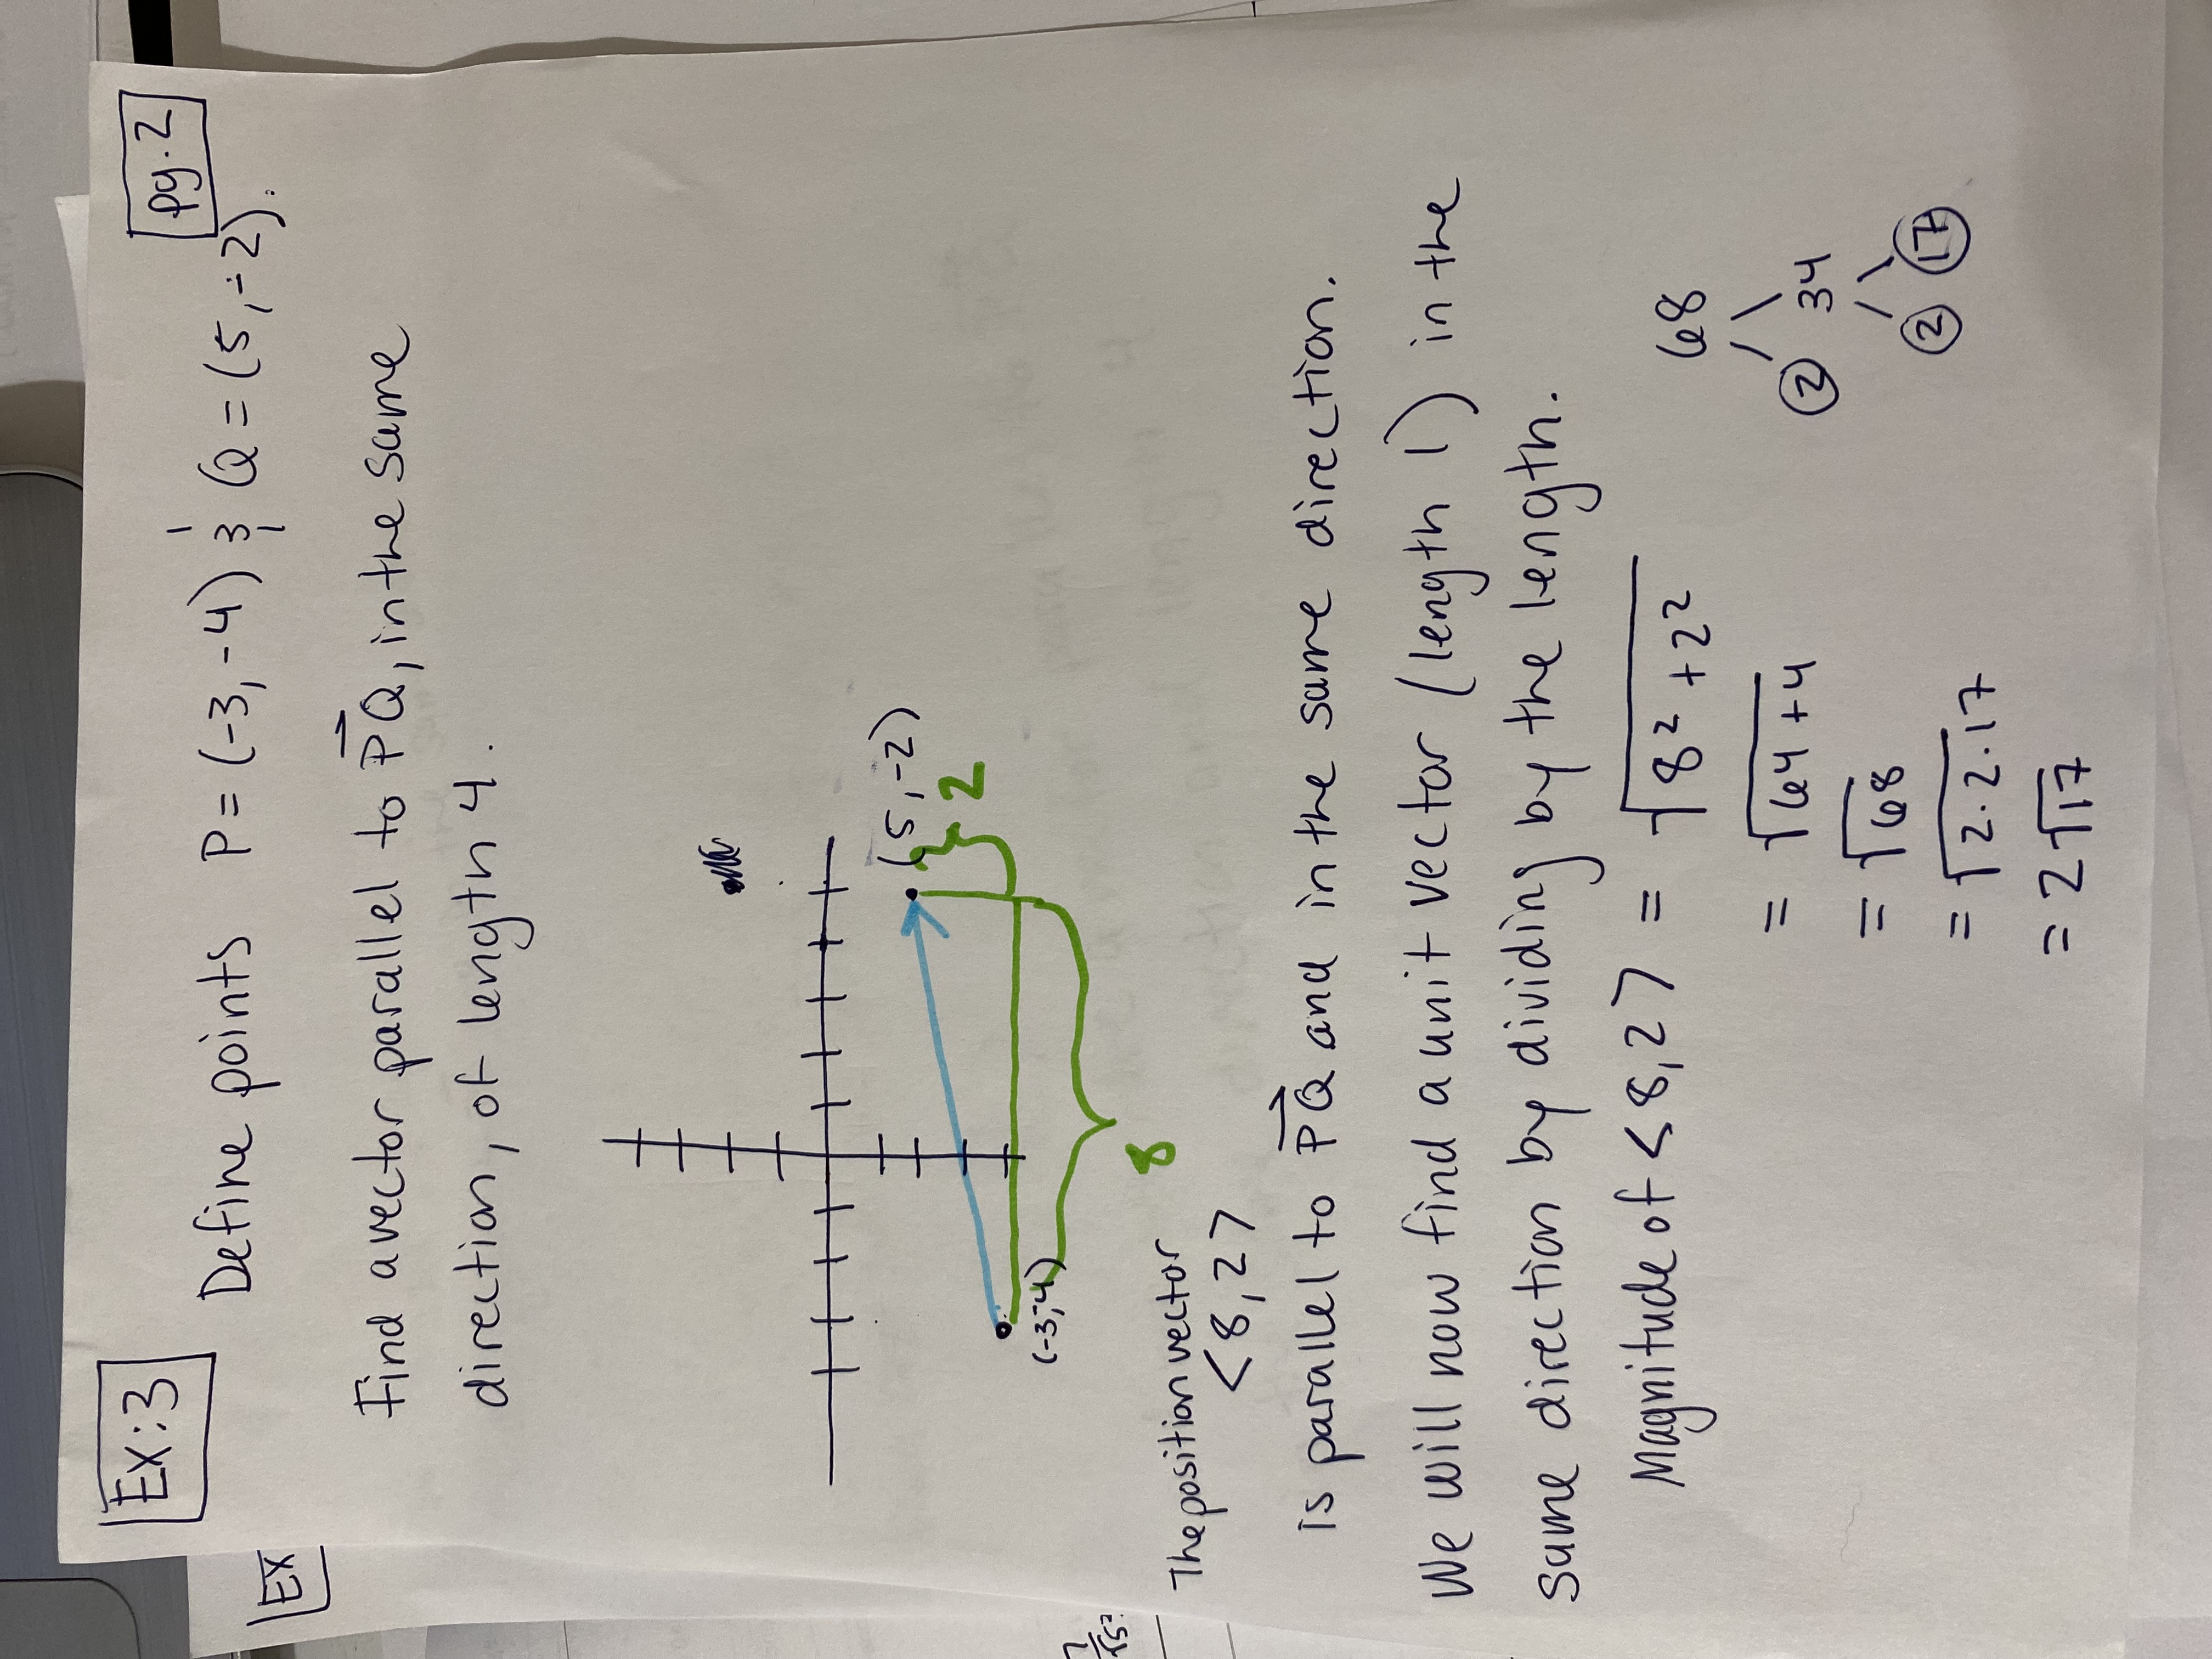 Ex:3
pg.2
Define points P = (-3, -4) & Q = (5, -2).
EX
Find a vector parallel to PQ, in the same
direction, of length 4.
(5, -2)
2
(-3, -4)
8
7
√5²
The position vector
<8,2>
is parallel to PQ and in the same direction.
We will now find a unit vector (length 1) in the
same direction by dividing by the length.
Magnitude of <8,2> = √8² + 2²
= √64 + 4
= √68
= √2·2·17
= 2√17
68
2 34
2 17